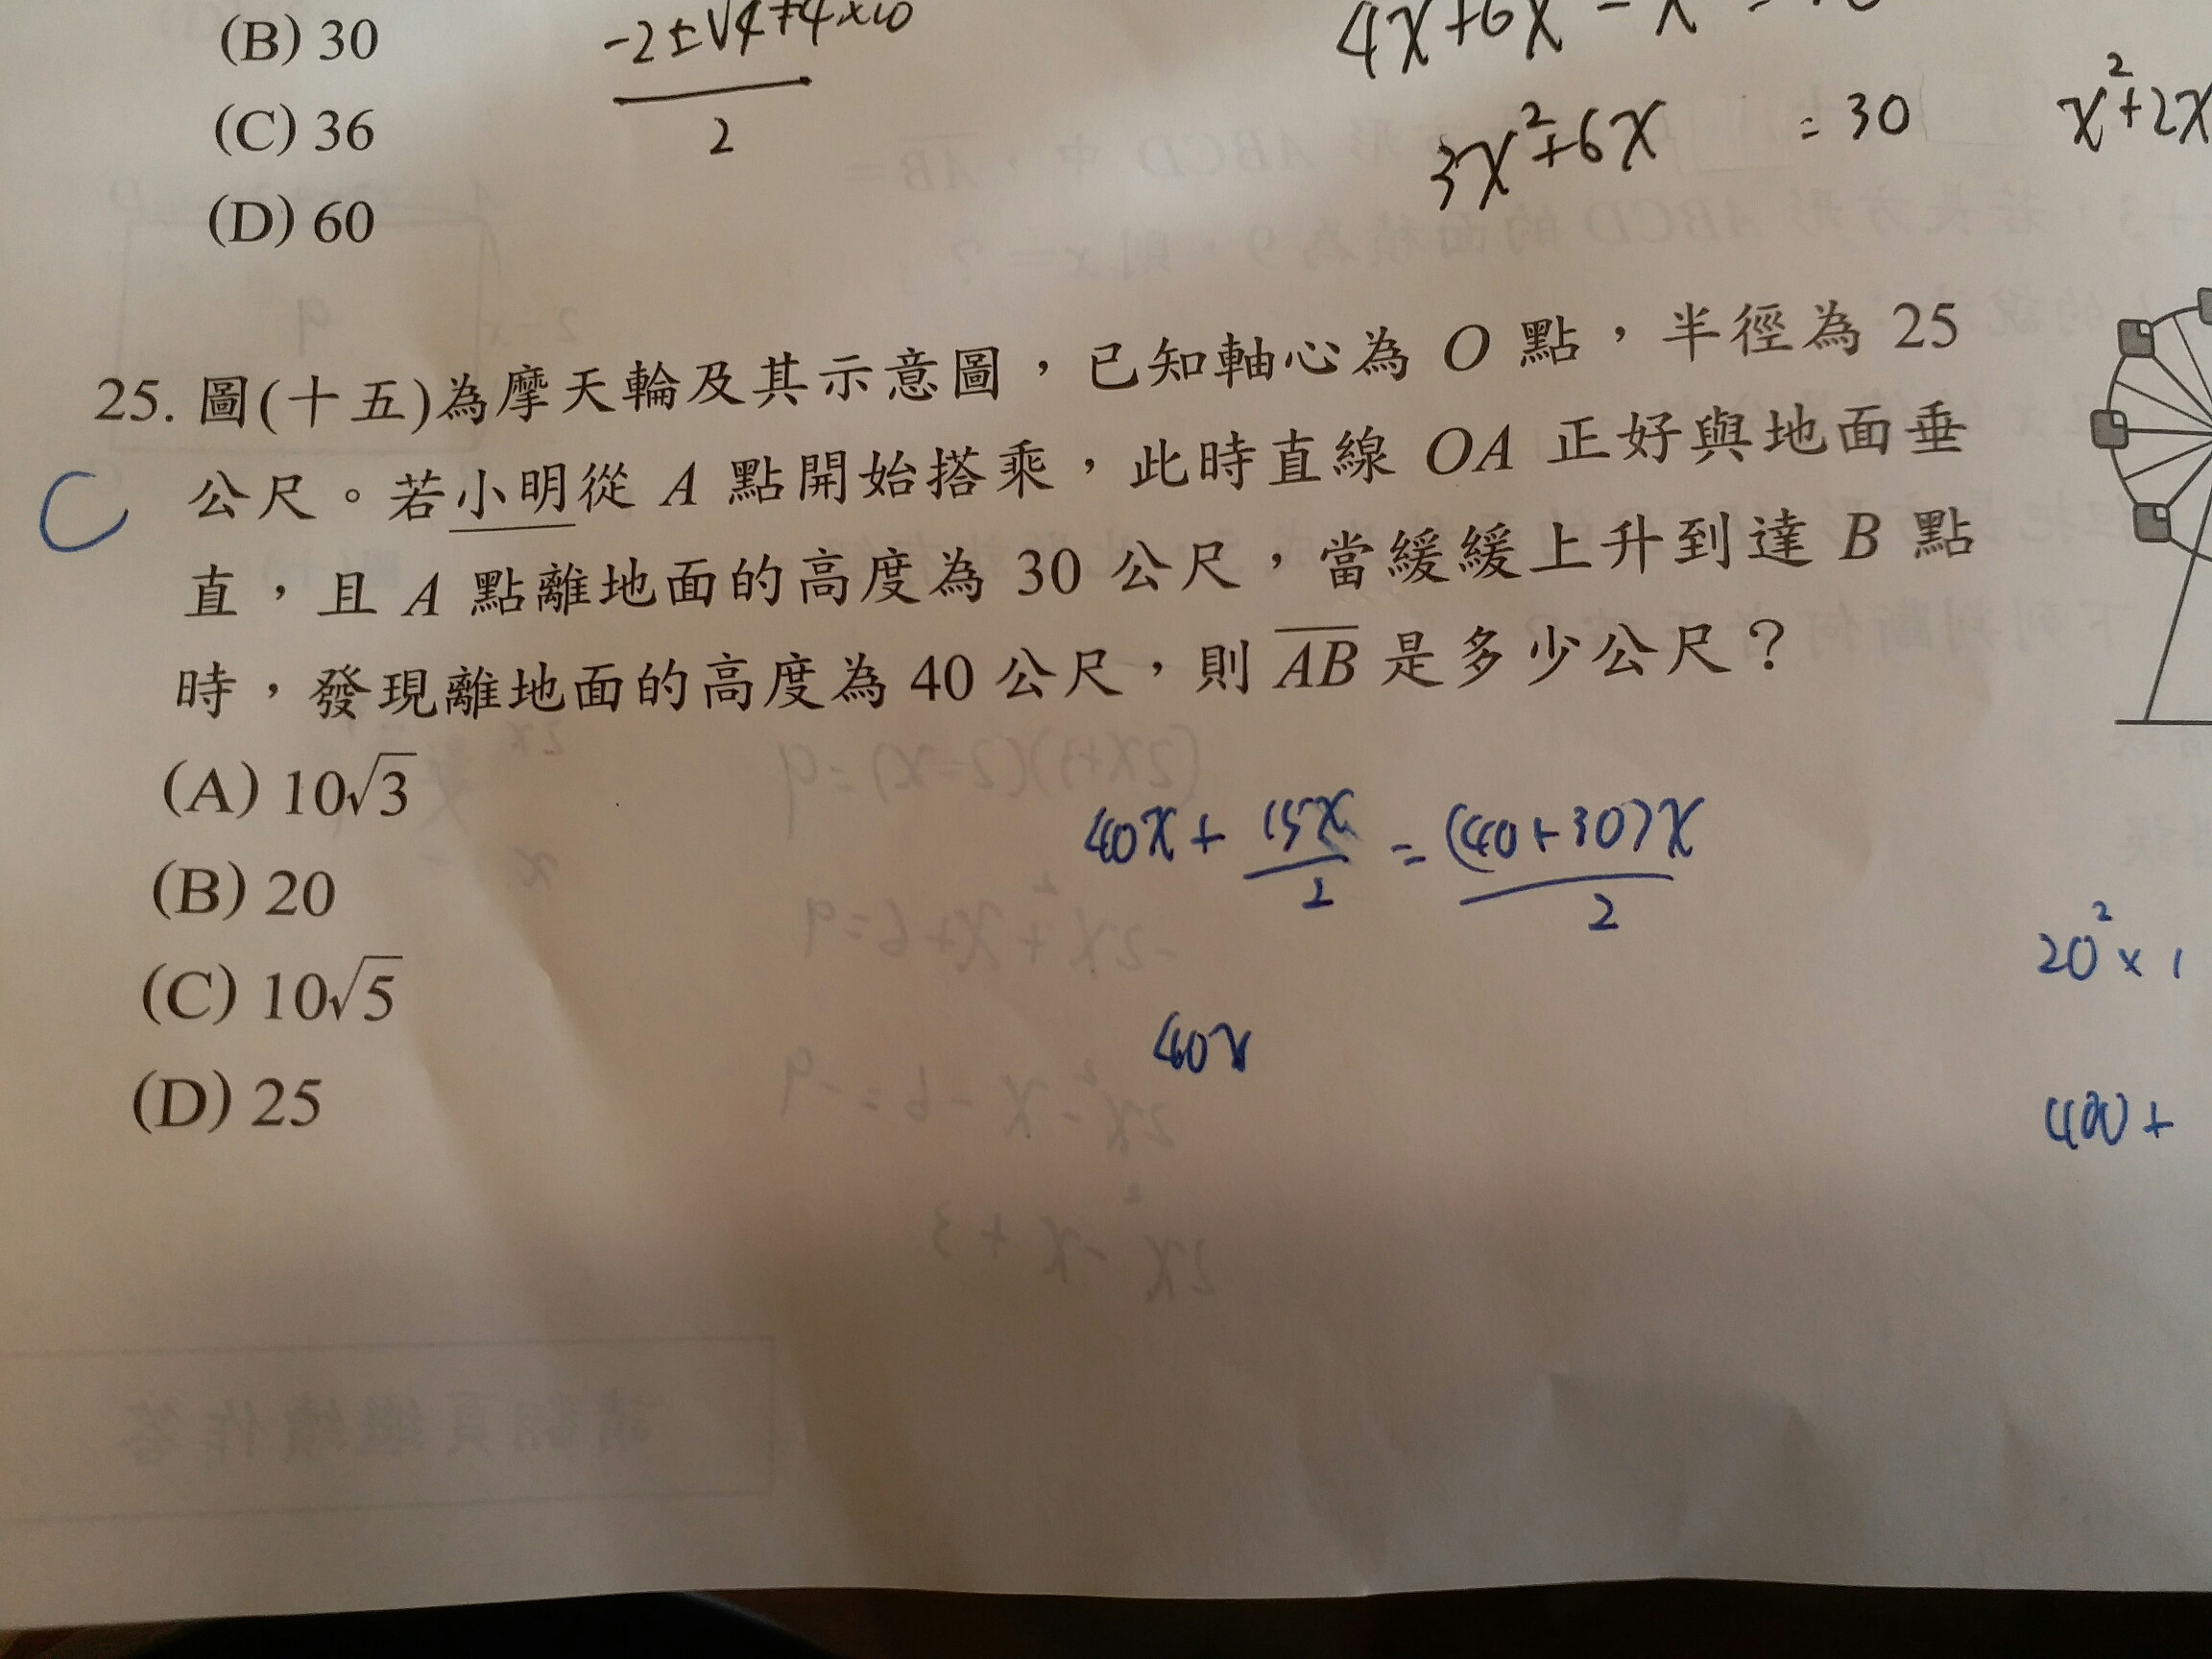 (B) 30
-2±√4+4×10
2
(C) 36
3x²+6x = 30
x²+2x
(D) 60
25. 圖(十五)為摩天輪及其示意圖，已知軸心為 O 點，半徑為 25
公尺。若小明從 A 點開始搭乘，此時直線 OA 正好與地面垂
C
直，且 A 點離地面的高度為 30 公尺，當緩緩上升到達 B 點
時，發現離地面的高度為 40 公尺，則 AB 是多少公尺？
(A) 10√3
40x + 15x/2 = (40+30)x/2
(B) 20
20²×1
(C) 10√5
40x
(D) 25
400+
請翻頁繼續作答